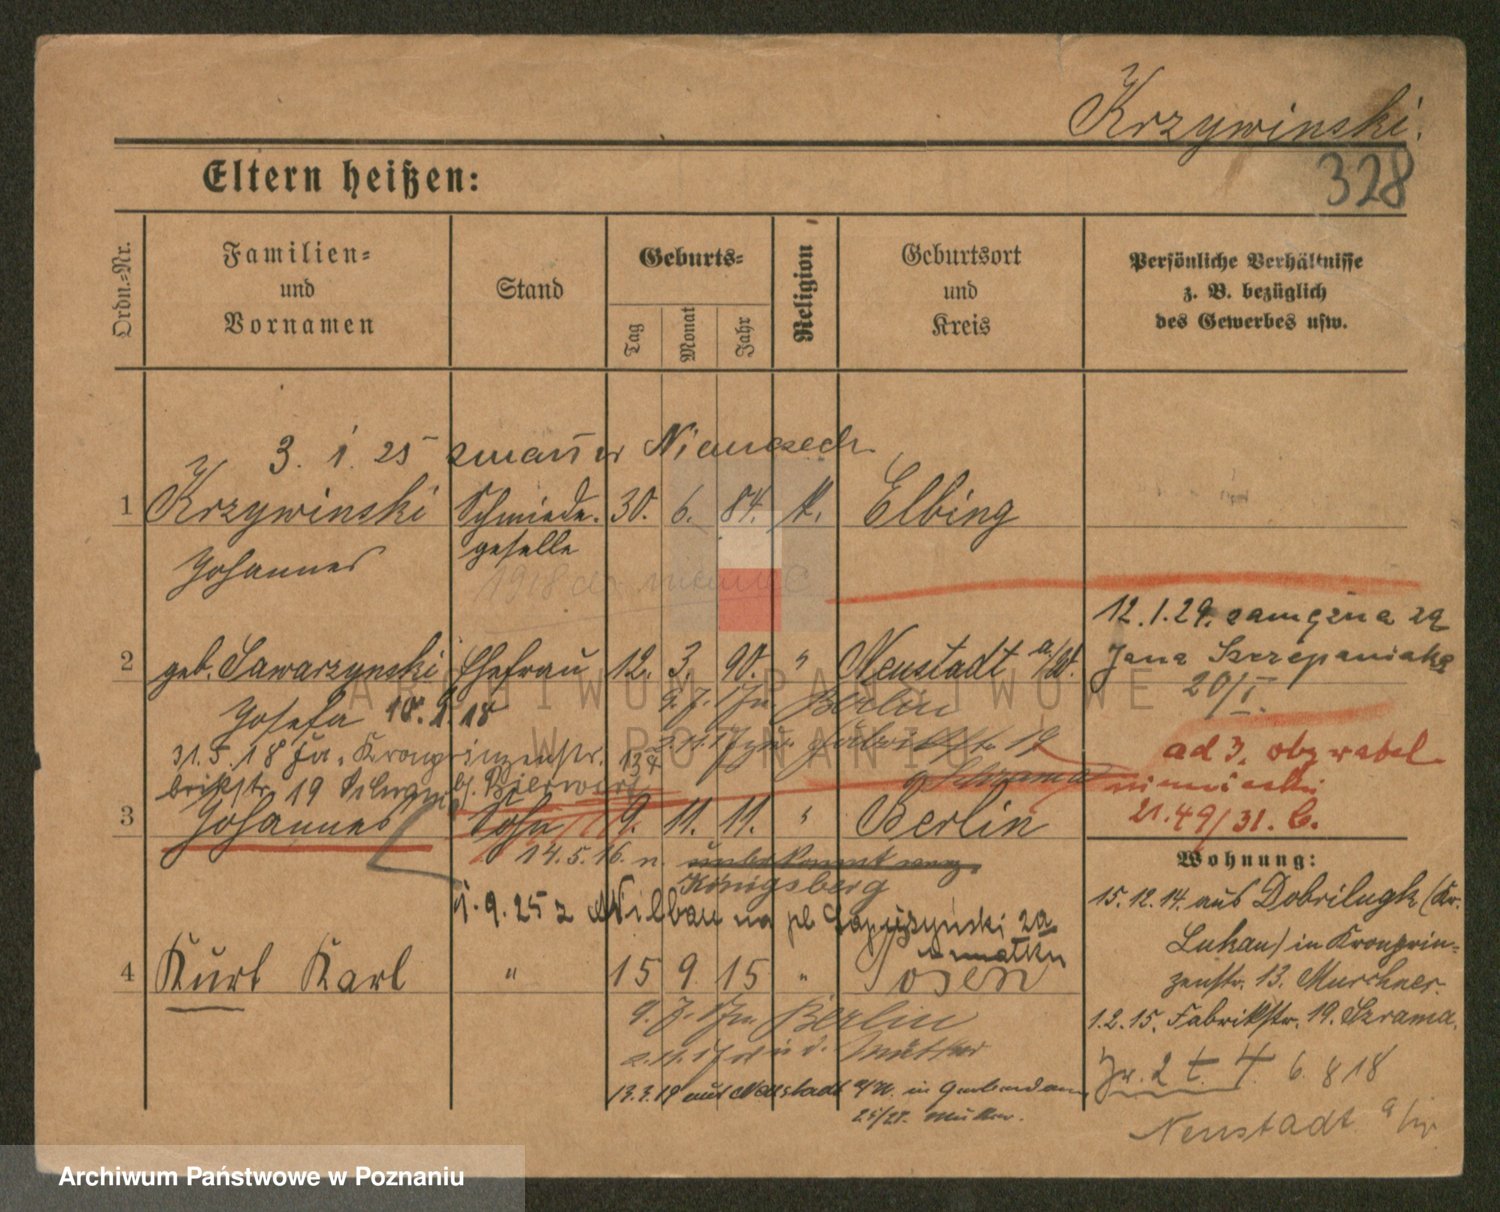 Krzywinski.
328
Eltern heißen:
Ordn.-Nr.
Familien=
und
Vornamen
Stand
Geburts=
Tag
Monat
Jahr
Religion
Geburtsort
und
Kreis
Persönliche Verhältnisse
z. B. bezüglich
des Gewerbes usw.
3. 1. 25 zmarł w Niemczech
1 Krzywinski Schmiede- 30. 6. 84. k. Elbing
Johannes geselle
1918
12.1.29. zamężna za
2 geb. Sawarzynski Ehefrau 12. 3. 90. " Neustadt a/W.
Jana Szczepaniaka
20/I.
Josefa 10. 18
9. 7. 17 Berlin
31.5.18 Kronprinzenstr. 13
brikstr. 19 b/. Bierwert
ad 3. obywatel
niemiecki
21.49/31. b.
3 Johannes Sohn 9. 11. 11. " Berlin
14.5.16. n. unbekannt
Königsberg
Wohnung:
15. 12. 14. aus Dobrilugk (Kr.
Lukau) in Kronprin-
zenstr. 13. Murchner.
1.2.15. Fabrikstr. 19. Szrama.
1. 9. 25 z Wilbau na pl. Sapieżyński 2a
matki
4 Kurt Karl " 15 9. 15 " Posen
9. 7. 17 Berlin
Mutter
13.3.19 aus Neustadt a/W. in
Mutter.
2 t. 4. 6. 8 18
Neustadt a/W.
ARCHIWUM PAŃSTWOWE
W POZNANIU
Archiwum Państwowe w Poznaniu